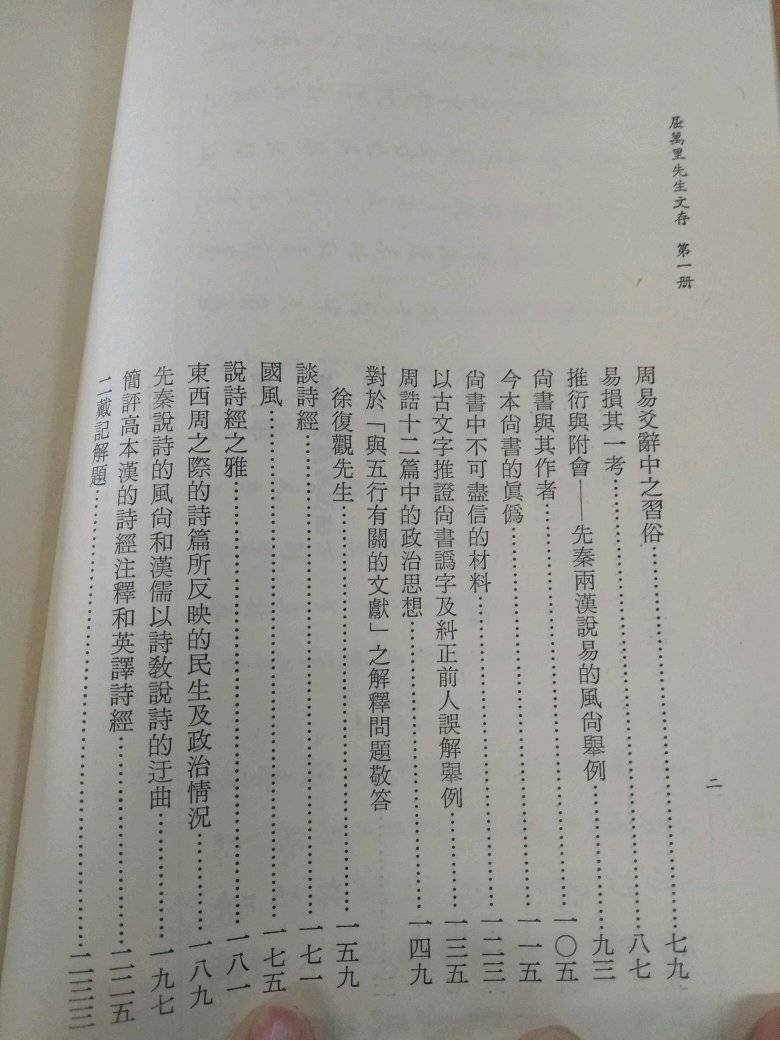 屈萬里先生文存　第一册
二
周易爻辭中之習俗……七九
易損其一考……八七
推衍與附會——先秦兩漢說易的風尙舉例……九三
尙書與其作者……一〇五
今本尙書的眞僞……一一五
尙書中不可盡信的材料……一二三
以古文字推證尙書譌字及糾正前人誤解舉例……一三五
周誥十二篇中的政治思想……一四九
對於「與五行有關的文獻」之解釋問題敬答
徐復觀先生……一五九
談詩經……一七一
國風……一七五
說詩經之雅……一八一
東西周之際的詩篇所反映的民生及政治情況……一八九
先秦說詩的風尙和漢儒以詩敎說詩的迂曲……一九七
簡評高本漢的詩經注釋和英譯詩經……二二五
二戴記解題……二三三